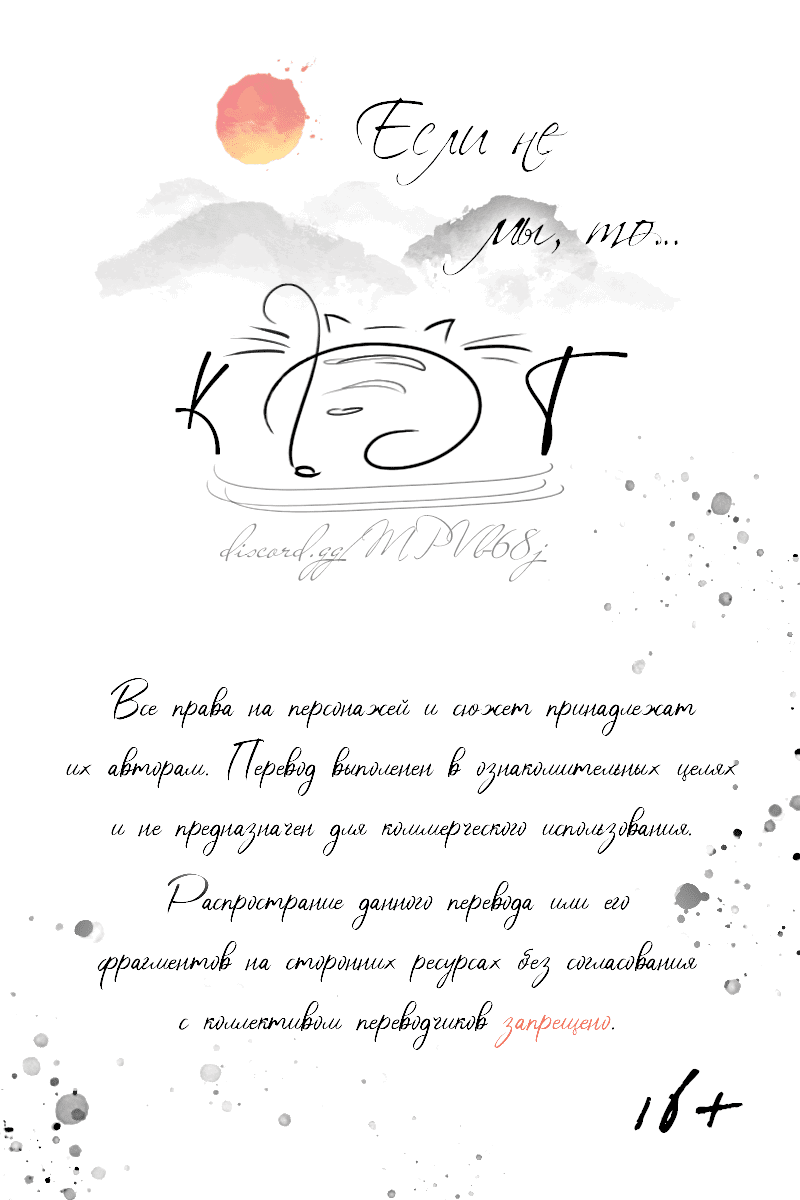 Если не
мы, то...
КОТ
discord.gg/MPVb68j
Все права на персонажей и сюжет принадлежат
их авторам. Перевод выполенен в ознакомительных целях
и не предназначен для коммерческого использования.
Распространие данного перевода или его
фрагментов на сторонних ресурсах без согласования
с коллективом переводчиков запрещено.
16+